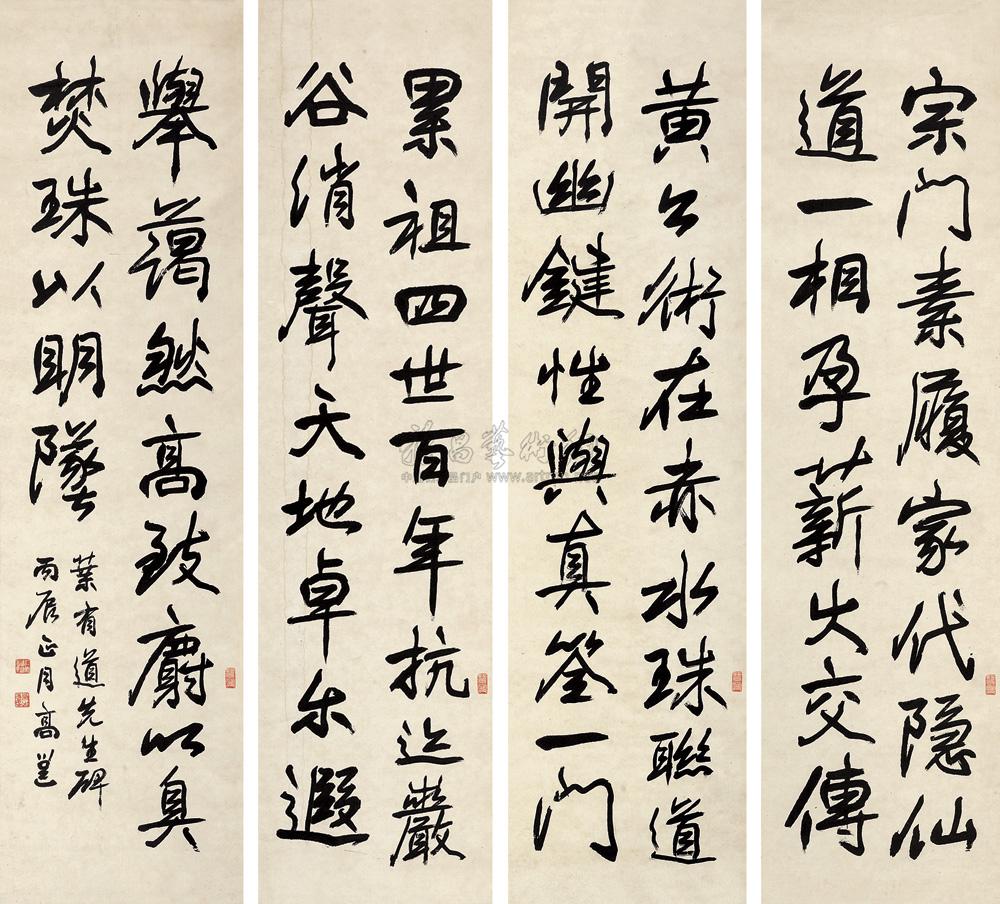 宗門素履家代隐仙
道一相孕薪火交傳
黄公術在赤水珠聯道
開幽鍵性與真筌一門
累祖四世百年抗迹巖
谷消聲天地卓尔遐
舉藹然高致麝以臭
焚珠以明墜
葉有道先生碑
丙辰正月高邕